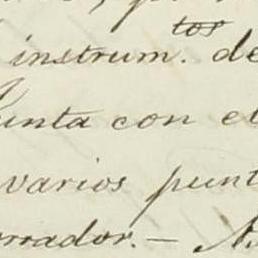 tos
instrum. de
Junta con el
varios punt
rrador. — A